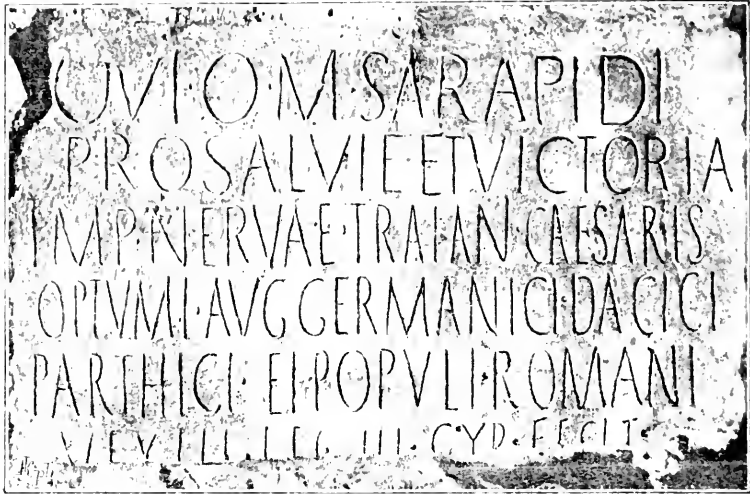 OVI·O·M·SARAPIDI
PRO SALVTE ET VICTORIA
IMP·NERVAE·TRAIAN CAESARIS
OPTVMI·AVG GERMANICI DACICI
PARTHICI·ET·POPVLI·ROMANI
VEXILL·LEG·III·CYR·FECIT